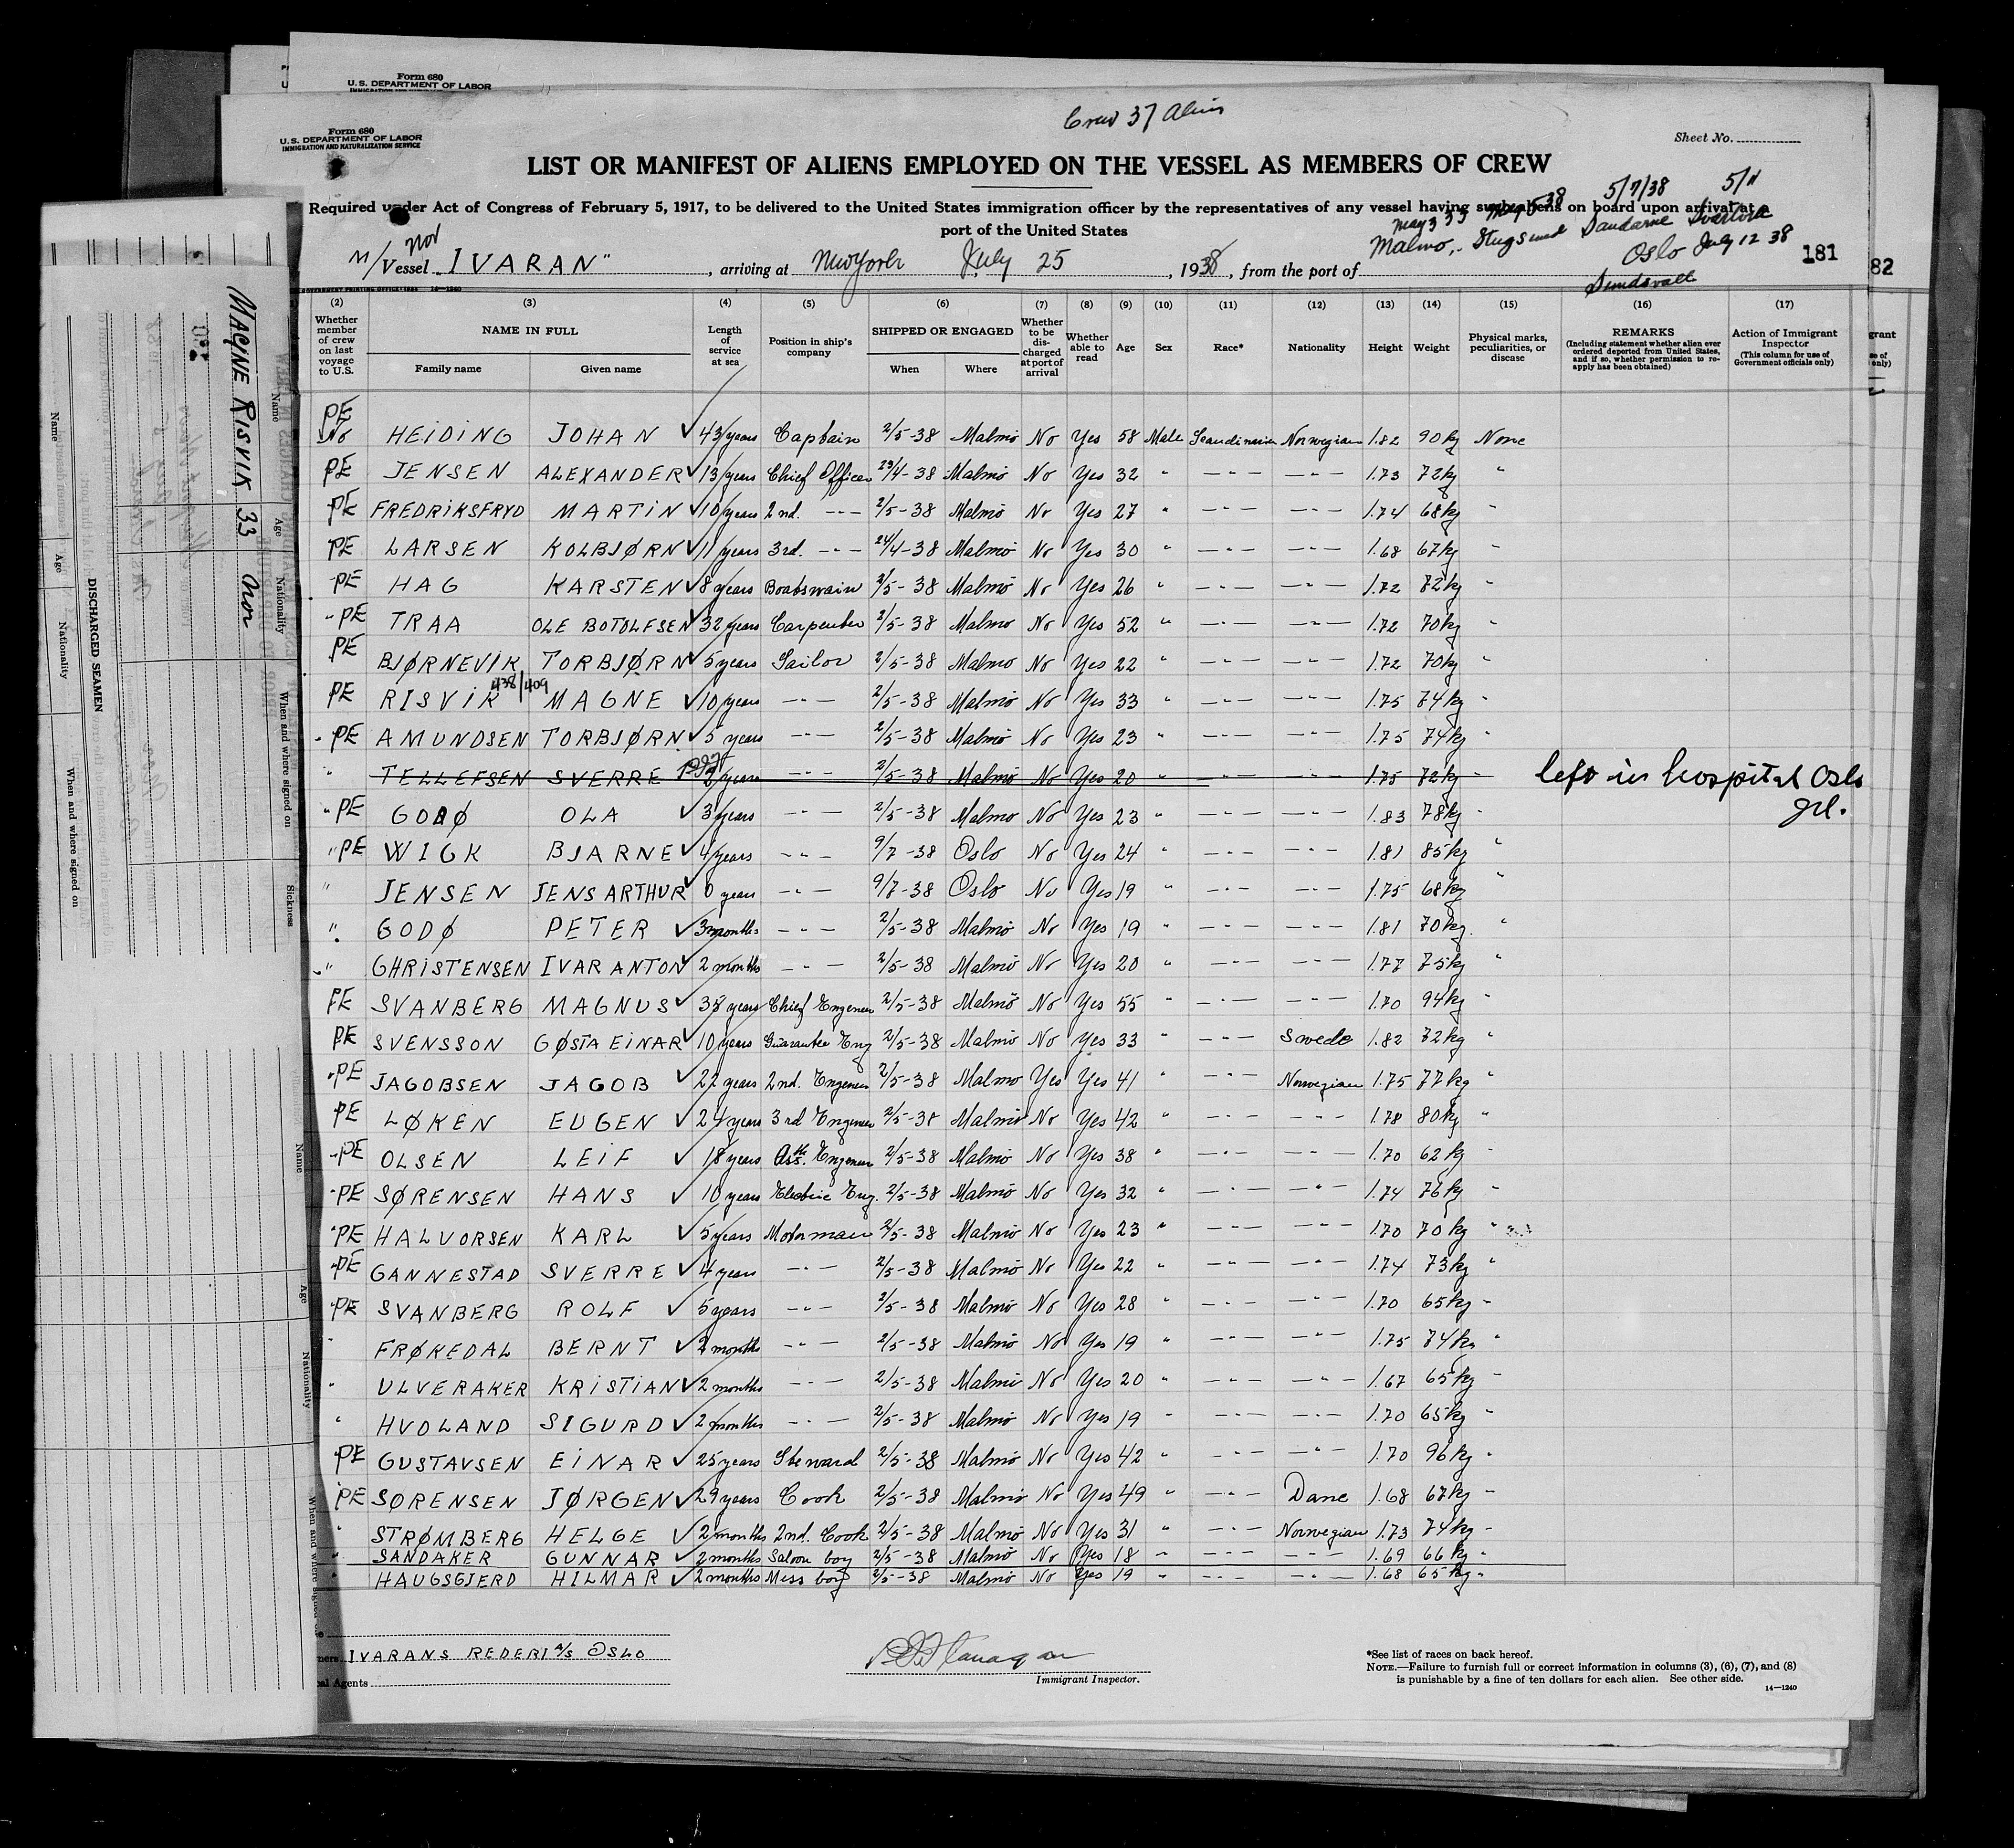 Form 680
U. S. DEPARTMENT OF LABOR
Form 680
U. S. DEPARTMENT OF LABOR
IMMIGRATION AND NATURALIZATION SERVICE
Crew 37 Aliens
Sheet No.
LIST OR MANIFEST OF ALIENS EMPLOYED ON THE VESSEL AS MEMBERS OF CREW
5/7/38 5/11
Required under Act of Congress of February 5, 1917, to be delivered to the United States immigration officer by the representatives of any vessel having such aliens on board upon arrival at a
port of the United States
Malmo, Stugsund Sandarne
Nor
M/Vessel "IVARAN", arriving at New York July 25, 1938, from the port of Oslo July 12 38
Sundsvall
181
82
(2) (3) (4) (5) (6) (7) (8) (9) (10) (11) (12) (13) (14) (15) (16) (17)
Whether member of crew on last voyage to U.S. NAME IN FULL Family name Given name Length of service at sea Position in ship's company SHIPPED OR ENGAGED When Where Whether to be discharged at port of arrival Whether able to read Age Sex Race* Nationality Height Weight Physical marks, peculiarities, or disease REMARKS (Including statement whether alien ever ordered deported from United States, and if so, whether permission to reapply has been obtained) Action of Immigrant Inspector (This column for use of Government officials only)
PE No HEIDING JOHAN ✓ 43 years Captain 2/5-38 Malmö No Yes 58 Male Scandinavian Norwegian 1.82 90 kg None
PE JENSEN ALEXANDER ✓ 13 years Chief Officer 29/4-38 Malmö No Yes 32 " -"- -"- 1.73 72 kg "
PE FREDRIKSFRYD MARTIN ✓ 10 years 2nd. -"- 2/5-38 Malmö No Yes 27 " -"- -"- 1.74 68 kg "
PE LARSEN KOLBJØRN ✓ 11 years 3rd. -"- 24/4-38 Malmö No Yes 30 " -"- -"- 1.68 67 kg "
PE HAG KARSTEN ✓ 8 years Boatswain 2/5-38 Malmö No Yes 26 " -"- -"- 1.72 72 kg "
" PE TRAA OLE BOTOLFSEN ✓ 32 years Carpenter 2/5-38 Malmö No Yes 52 " -"- -"- 1.72 70 kg "
PE BJØRNEVIK TORBJØRN ✓ 5 years Sailor 2/5-38 Malmö No Yes 22 " -"- -"- 1.72 70 kg "
438/409
PE RISVIK MAGNE ✓ 10 years -"- 2/5-38 Malmö No Yes 33 " -"- -"- 1.75 74 kg "
" PE AMUNDSEN TORBJØRN ✓ 5 years -"- 2/5-38 Malmö No Yes 23 " -"- -"- 1.75 74 kg "
" TELLEFSEN SVERRE 2 years -"- 2/5-38 Malmö No Yes 20 " -"- -"- 1.75 72 kg " left in hospital Oslo
" PE GODØ OLA ✓ 3 years -"- 2/5-38 Malmö No Yes 23 " -"- -"- 1.83 78 kg "
" PE WIGK BJARNE ✓ 4 years -"- 9/7-38 Oslo No Yes 24 " -"- -"- 1.81 85 kg "
" JENSEN JENS ARTHUR ✓ 0 years -"- 9/7-38 Oslo No Yes 19 " -"- -"- 1.75 68 kg "
" GODØ PETER ✓ 3 months -"- 2/5-38 Malmö No Yes 19 " -"- -"- 1.81 70 kg "
" GHRISTENSEN IVAR ANTON ✓ 2 months -"- 2/5-38 Malmö No Yes 20 " -"- -"- 1.77 75 kg "
PE SVANBERG MAGNUS ✓ 38 years Chief Engeneer 2/5-38 Malmö No Yes 55 " -"- -"- 1.70 94 kg "
PE SVENSSON GØSTA EINAR ✓ 10 years Guarantee Eng 2/5-38 Malmö No Yes 33 " -"- Swede 1.82 72 kg "
" PE JAGOBSEN JAGOB ✓ 22 years 2nd. Engeneer 2/5-38 Malmö Yes Yes 41 " -"- Norwegian 1.75 77 kg "
PE LØKEN EUGEN ✓ 24 years 3rd Engeneer 2/5-38 Malmö No Yes 42 " -"- -"- 1.78 80 kg "
" PE OLSEN LEIF ✓ 18 years Ass. Engeneer 2/5-38 Malmö No Yes 38 " -"- -"- 1.70 62 kg "
" PE SØRENSEN HANS ✓ 10 years Electric Eng. 2/5-38 Malmö No Yes 32 " -"- -"- 1.74 76 kg "
" PE HALVORSEN KARL ✓ 5 years Motorman 2/5-38 Malmö No Yes 23 " -"- -"- 1.70 70 kg "
" PE GANNESTAD SVERRE ✓ 4 years -"- 2/5-38 Malmö No Yes 22 " -"- -"- 1.74 73 kg "
" PE SVANBERG ROLF ✓ 5 years -"- 2/5-38 Malmö No Yes 28 " -"- -"- 1.70 65 kg "
" FRØKEDAL BERNT ✓ 2 months -"- 2/5-38 Malmö No Yes 19 " -"- -"- 1.75 74 kg "
" ULVERAKER KRISTIAN ✓ 2 months -"- 2/5-38 Malmö No Yes 20 " -"- -"- 1.67 65 kg "
" HVOLAND SIGURD ✓ 2 months -"- 2/5-38 Malmö No Yes 19 " -"- -"- 1.70 65 kg "
" PE GUSTAVSEN EINAR ✓ 25 years Steward 2/5-38 Malmö No Yes 42 " -"- -"- 1.70 96 kg "
" PE SØRENSEN JØRGEN ✓ 29 years Cook 2/5-38 Malmö No Yes 49 " -"- Dane 1.68 67 kg "
" STRØMBERG HELGE ✓ 2 months 2nd. Cook 2/5-38 Malmö No Yes 31 " -"- Norwegian 1.73 74 kg "
" SANDAKER GUNNAR ✓ 2 months Saloon boy 2/5-38 Malmö No Yes 18 " -"- -"- 1.69 66 kg "
" HAUGSGJERD HILMAR ✓ 2 months Mess boy 2/5-38 Malmö No Yes 19 " -"- -"- 1.68 65 kg "
IVARANS REDERI A/S OSLO
Immigrant Inspector.
*See list of races on back hereof.
NOTE.—Failure to furnish full or correct information in columns (3), (6), (7), and (8)
is punishable by a fine of ten dollars for each alien. See other side.
14—1240
MAGNE RISVIK 33 Nor
Name Age Nationality When and where signed on Sickness
DISCHARGED SEAMEN
Name Age Nationality When and where signed on
Name Age Nationality